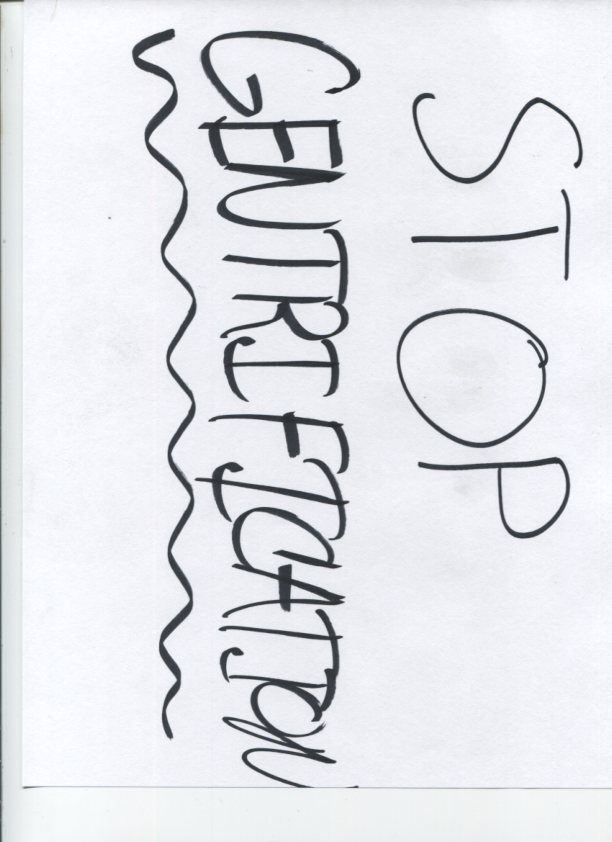 STOP
GENTRIFICATION